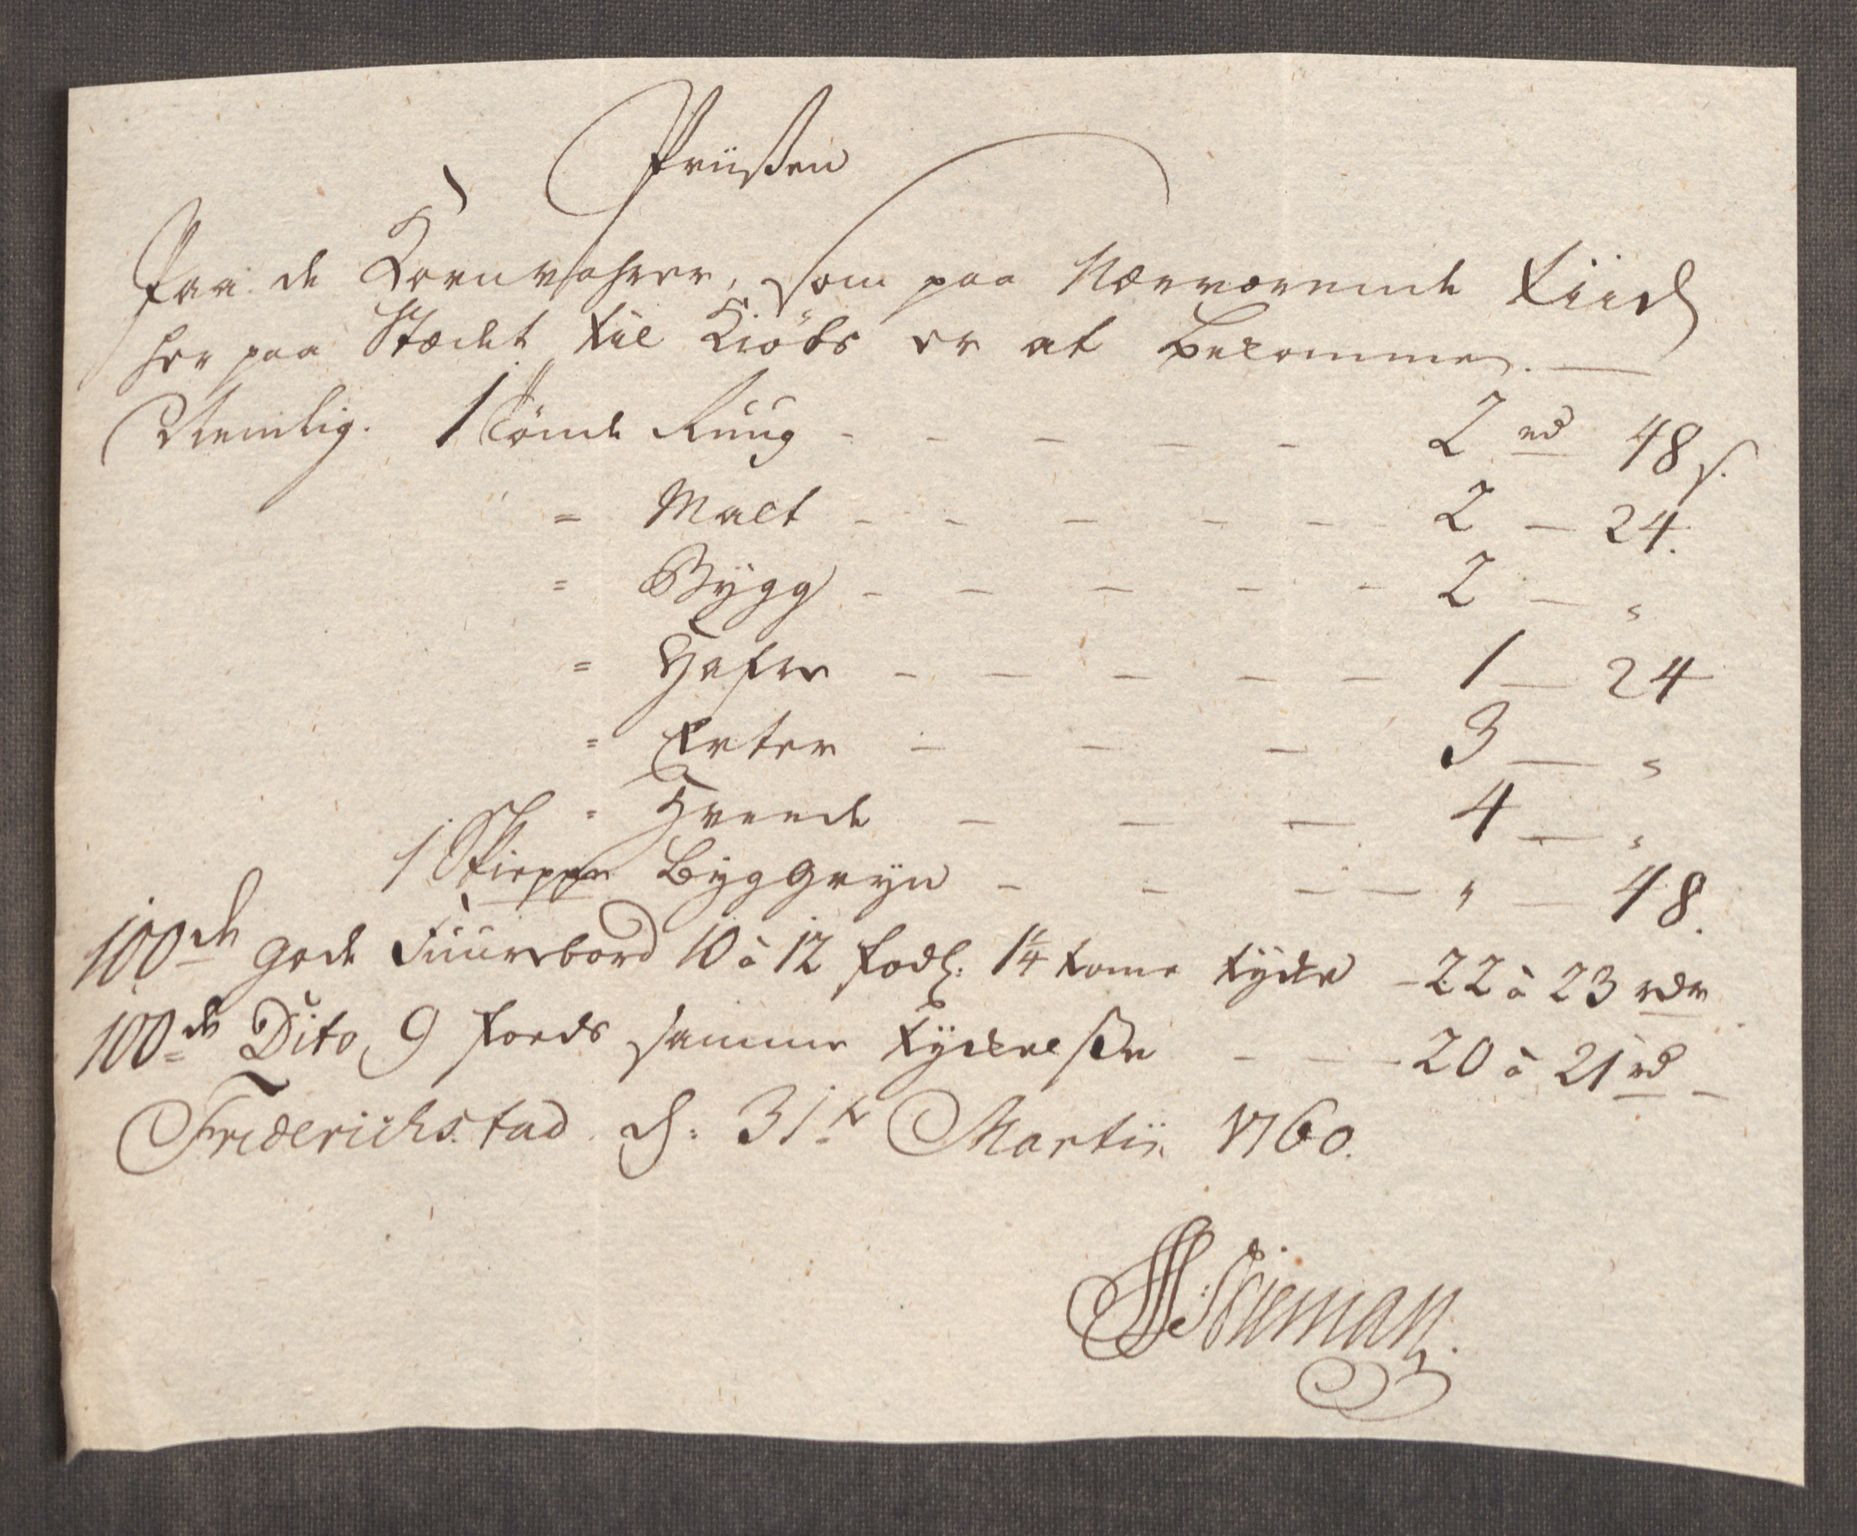 Priißen
Paa de Kornvahrer, som paa Nærværende Tiid
her paa Stædet til Kiöbs er at bekomme. —
Nemlig. 1 Tönde Ruug - - - - - 2 rd 48 s.
= Malt - - - - - 2 — 24.
= Bÿgg - - - - - 2 — "
= Hafre - - - - - 1 — 24
= Erter - - - 3 — "
= Hveede - - - 4 — "
1 Skieppe Bÿggrÿn - - - - " — 48.
100de gode Fuurebord 10 à 12 fods: 1¼ tome tÿcke - 22 à 23 rdr
100de Dito, 9 foeds samme tÿckelße - - - 20 à 21 rd -
Friderichstad d: 31te Martii 1760.